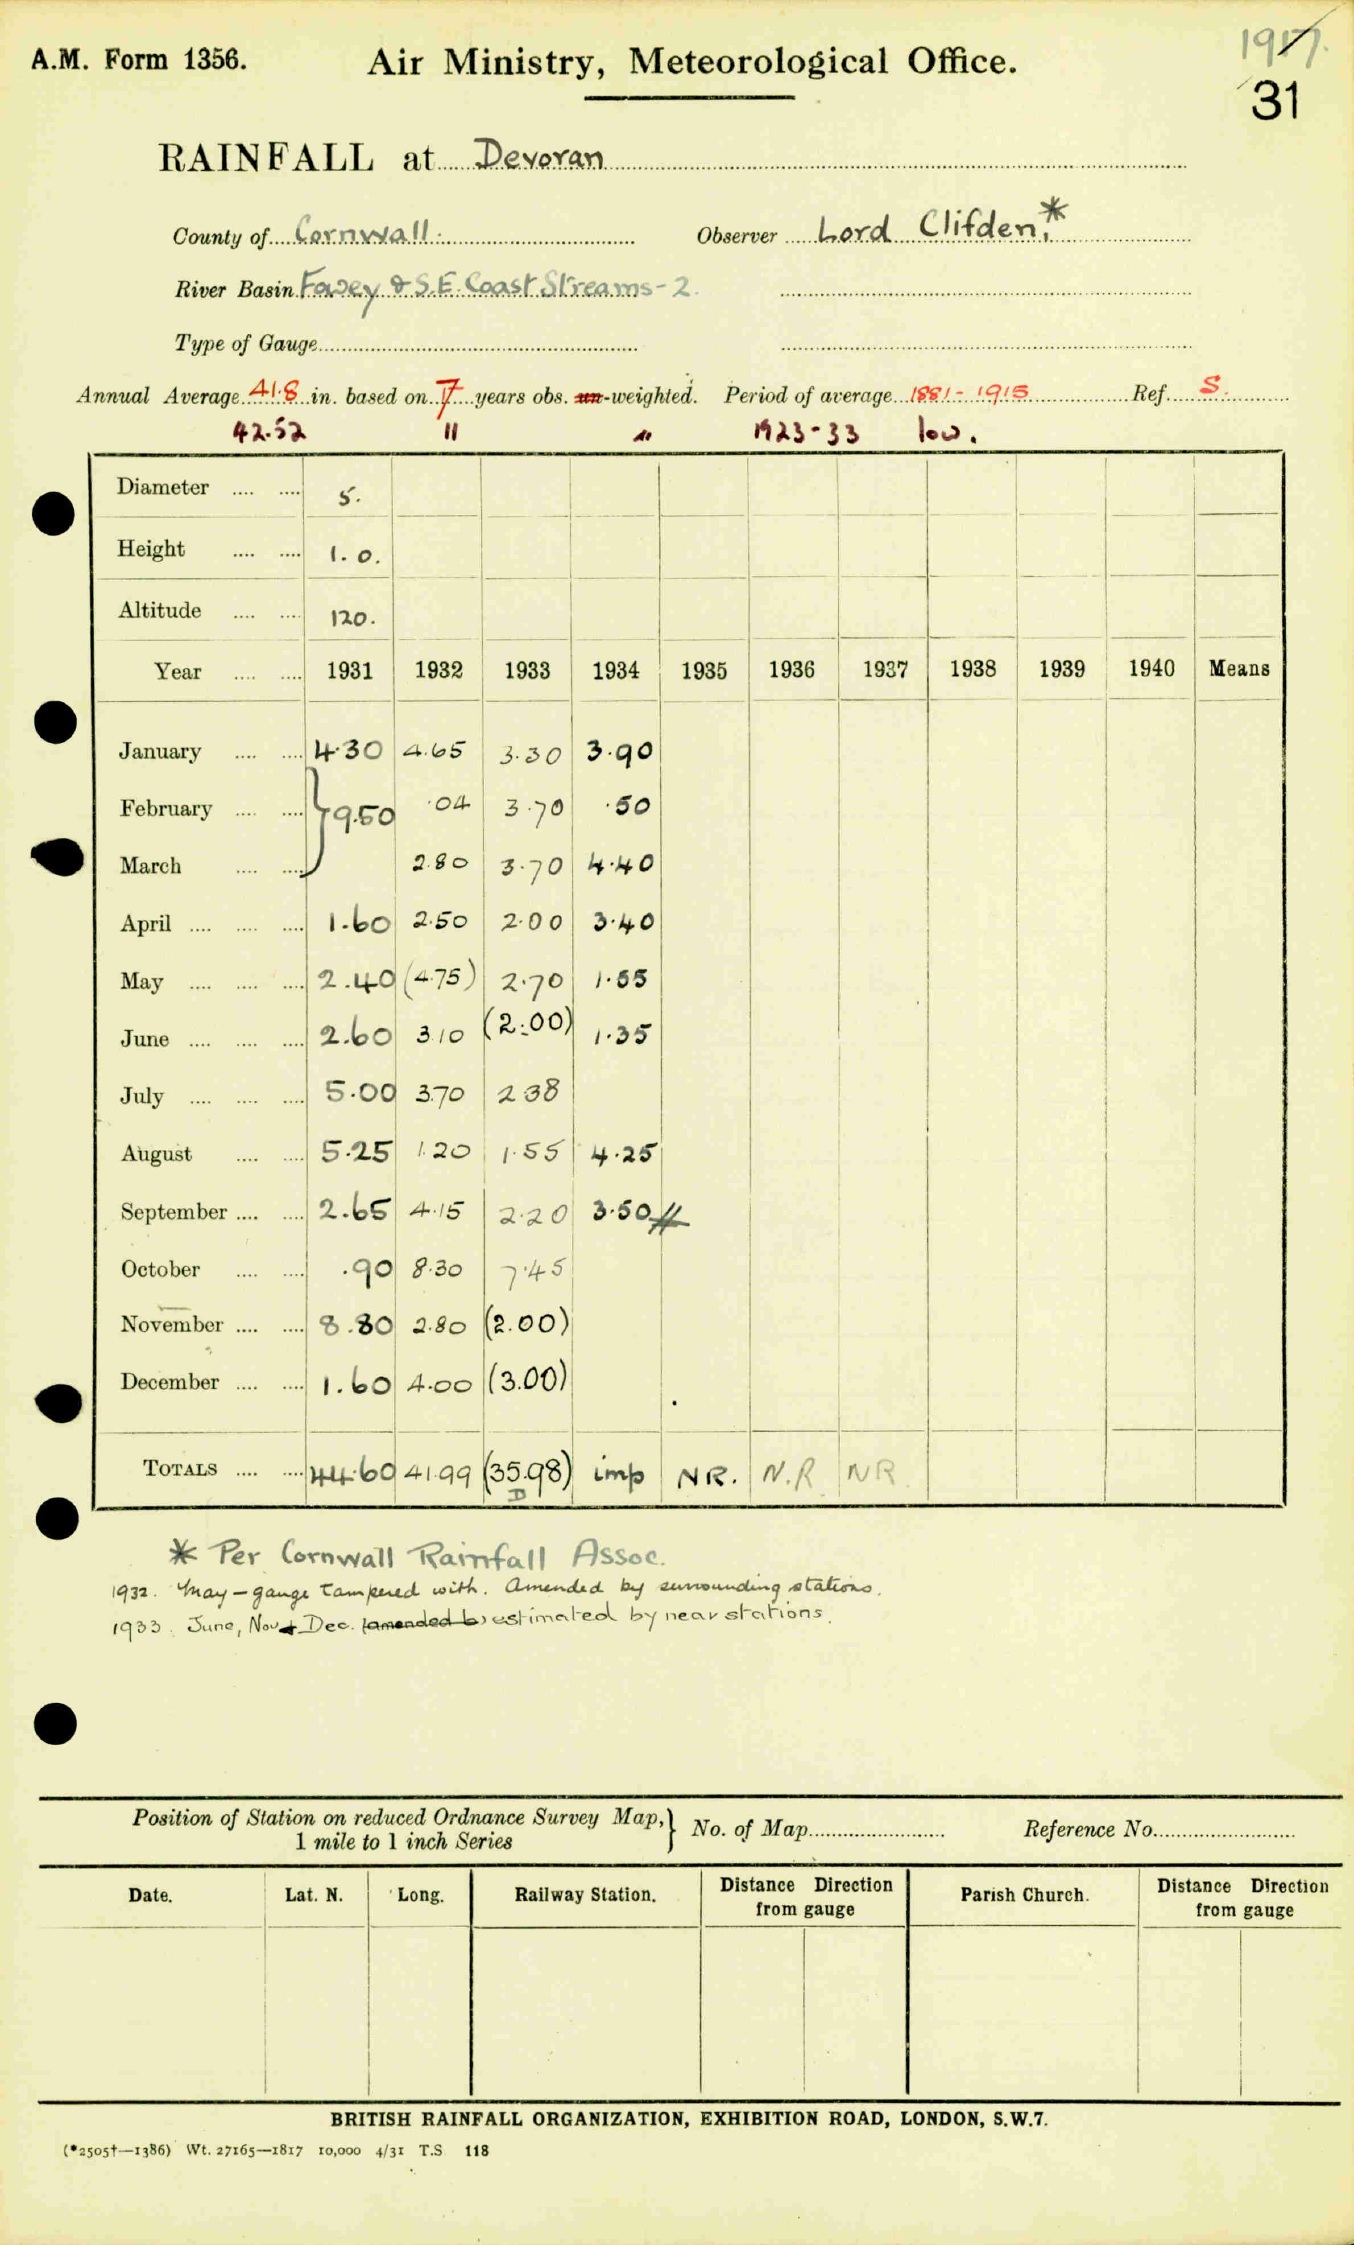 A.M. Form 1356. Air Ministry, Meteorological Office. 1917.
31
RAINFALL at Devoran
County of Cornwall. Observer Lord Clifden,*
River Basin Fowey & S.E. Coast Streams - 2.
Type of Gauge
Annual Average 41.8 in. based on 7 years obs. un-weighted. Period of average 1881 - 1915 Ref. S.
42.52 11 " 1923-33 low.
Diameter .... .... 5.
Height .... .... 1.0.
Altitude .... .... 120.
Year .... .... 1931 1932 1933 1934 1935 1936 1937 1938 1939 1940 Means
January .... .... 4.30 4.65 3.30 3.90
February .... .... } 9.50 .04 3.70 .50
March .... .... 2.80 3.70 4.40
April .... .... .... 1.60 2.50 2.00 3.40
May .... .... .... 2.40 (4.75) 2.70 1.55
June .... .... .... 2.60 3.10 (2.00) 1.35
July .... .... .... 5.00 3.70 2.38
August .... .... 5.25 1.20 1.55 4.25
September .... .... 2.65 4.15 2.20 3.50 //
October .... .... .90 8.30 7.45
November .... .... 8.80 2.80 (2.00)
December .... .... 1.60 4.00 (3.00)
TOTALS .... .... 44.60 41.99 (35.98) imp NR. N.R. NR
D
* Per Cornwall Rainfall Assoc.
1932. May - gauge tampered with. Amended by surrounding stations.
1933. June, Nov + Dec. (amended b) estimated by near stations.
Position of Station on reduced Ordnance Survey Map, } No. of Map Reference No.
1 mile to 1 inch Series
Date. Lat. N. Long. Railway Station. Distance Direction from gauge Parish Church. Distance Direction from gauge
BRITISH RAINFALL ORGANIZATION, EXHIBITION ROAD, LONDON, S.W.7.
(*2505†—1386) Wt. 27165—1817 10,000 4/31 T.S 118